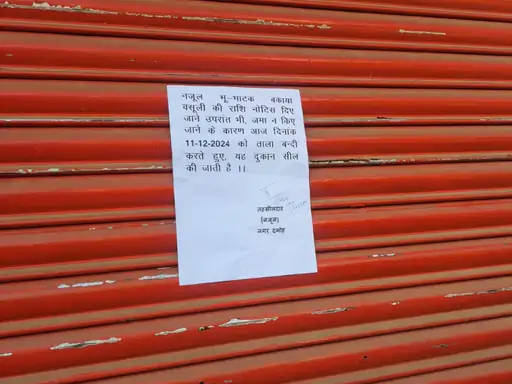 नजूल भू-भाटक बकाया
वसूली की राशि नोटिस दिए
जाने उपरांत भी, जमा न किए
जाने के कारण आज दिनांक
11-12-2024 को ताला बन्दी
करते हुए, यह दुकान सील
की जाती है ।।
तहसीलदार
(नजूल)
नगर दमोह